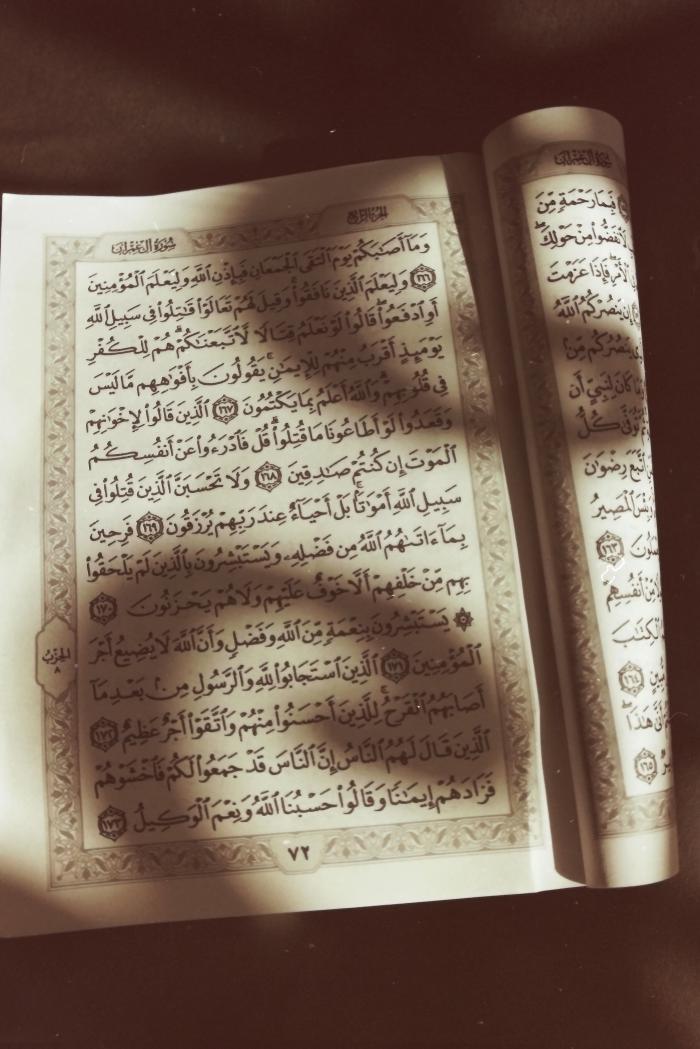 سُورَةُ آلِ عِمْرَان
فَبِمَا رَحْمَةٍ مِّنَ
لَٱنفَضُّوا۟ مِنْ حَوْلِكَ ۖ
فَإِذَا عَزَمْتَ
إِن يَنصُرْكُمُ ٱللَّهُ
يَنصُرُكُم مِّنۢ
كَانَ لِنَبِىٍّ أَن
تُوَفَّىٰ كُلُّ
ٱتَّبَعَ رِضْوَٰنَ
وَبِئْسَ ٱلْمَصِيرُ
١٦٣
مِّنْ أَنفُسِهِمْ
ٱلْكِتَٰبَ
مُّبِينٍ ١٦٤
أَنَّىٰ هَٰذَا ۖ
١٦٥
الجُزْءُ الرَّابِعُ سُورَةُ آلِ عِمْرَان
وَمَآ أَصَٰبَكُمْ يَوْمَ ٱلْتَقَى ٱلْجَمْعَانِ فَبِإِذْنِ ٱللَّهِ وَلِيَعْلَمَ ٱلْمُؤْمِنِينَ
١٦٦ وَلِيَعْلَمَ ٱلَّذِينَ نَافَقُوا۟ ۚ وَقِيلَ لَهُمْ تَعَالَوْا۟ قَٰتِلُوا۟ فِى سَبِيلِ ٱللَّهِ
أَوِ ٱدْفَعُوا۟ ۖ قَالُوا۟ لَوْ نَعْلَمُ قِتَالًا لَّٱتَّبَعْنَٰكُمْ ۗ هُمْ لِلْكُفْرِ
يَوْمَئِذٍ أَقْرَبُ مِنْهُمْ لِلْإِيمَٰنِ ۚ يَقُولُونَ بِأَفْوَٰهِهِم مَّا لَيْسَ
فِى قُلُوبِهِمْ ۗ وَٱللَّهُ أَعْلَمُ بِمَا يَكْتُمُونَ ١٦٧ ٱلَّذِينَ قَالُوا۟ لِإِخْوَٰنِهِمْ
وَقَعَدُوا۟ لَوْ أَطَاعُونَا مَا قُتِلُوا۟ ۗ قُلْ فَٱدْرَءُوا۟ عَنْ أَنفُسِكُمُ
ٱلْمَوْتَ إِن كُنتُمْ صَٰدِقِينَ ١٦٨ وَلَا تَحْسَبَنَّ ٱلَّذِينَ قُتِلُوا۟ فِى
سَبِيلِ ٱللَّهِ أَمْوَٰتًۢا ۚ بَلْ أَحْيَآءٌ عِندَ رَبِّهِمْ يُرْزَقُونَ ١٦٩ فَرِحِينَ
بِمَآ ءَاتَىٰهُمُ ٱللَّهُ مِن فَضْلِهِۦ وَيَسْتَبْشِرُونَ بِٱلَّذِينَ لَمْ يَلْحَقُوا۟
بِهِم مِّنْ خَلْفِهِمْ أَلَّا خَوْفٌ عَلَيْهِمْ وَلَا هُمْ يَحْزَنُونَ ١٧٠
۞ يَسْتَبْشِرُونَ بِنِعْمَةٍ مِّنَ ٱللَّهِ وَفَضْلٍ وَأَنَّ ٱللَّهَ لَا يُضِيعُ أَجْرَ
ٱلْمُؤْمِنِينَ ١٧١ ٱلَّذِينَ ٱسْتَجَابُوا۟ لِلَّهِ وَٱلرَّسُولِ مِنۢ بَعْدِ مَآ
أَصَابَهُمُ ٱلْقَرْحُ ۚ لِلَّذِينَ أَحْسَنُوا۟ مِنْهُمْ وَٱتَّقَوْا۟ أَجْرٌ عَظِيمٌ ١٧٢
ٱلَّذِينَ قَالَ لَهُمُ ٱلنَّاسُ إِنَّ ٱلنَّاسَ قَدْ جَمَعُوا۟ لَكُمْ فَٱخْشَوْهُمْ
فَزَادَهُمْ إِيمَٰنًا وَقَالُوا۟ حَسْبُنَا ٱللَّهُ وَنِعْمَ ٱلْوَكِيلُ ١٧٣
الحِزْبُ
٨
٧٢